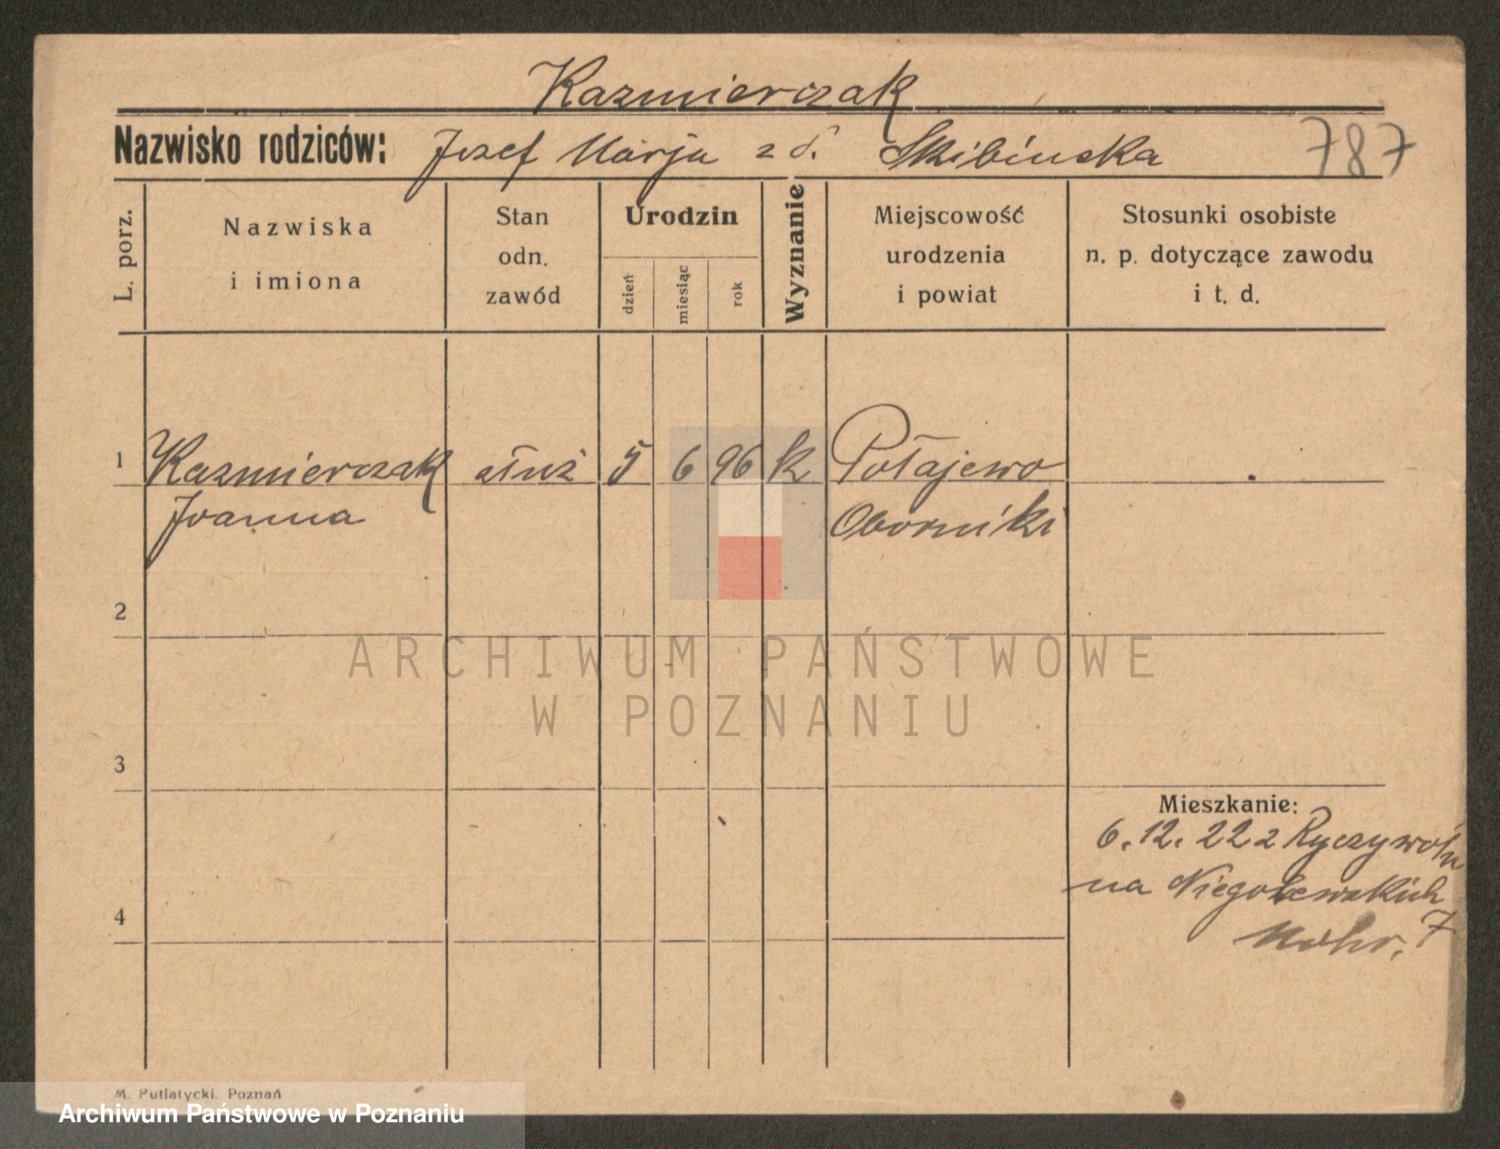 Kazmierczak
Nazwisko rodziców: Jozef Marja z d. Skibińska 787
L. porz.
Nazwiska
i imiona
Stan
odn.
zawód
Urodzin
dzień
miesiąc
rok
Wyznanie
Miejscowość
urodzenia
i powiat
Stosunki osobiste
n. p. dotyczące zawodu
i t. d.
1 Kazmierczak służ 5 6 96 k Połajewo
Joanna Oborniki
2
ARCHIWUM PAŃSTWOWE
W POZNANIU
3
Mieszkanie:
6. 12. 22 z Ryczywołu
na Niegolewskich
4
7
M. Putiatycki. Poznań
Archiwum Państwowe w Poznaniu